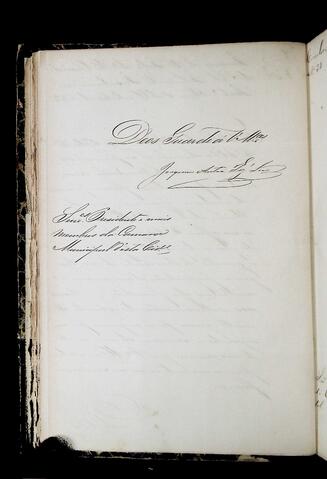 Deos Guarde a V. Mces
Joaquim
Snres Presidente e mais
membros da Camara
Municipal desta Cid.e